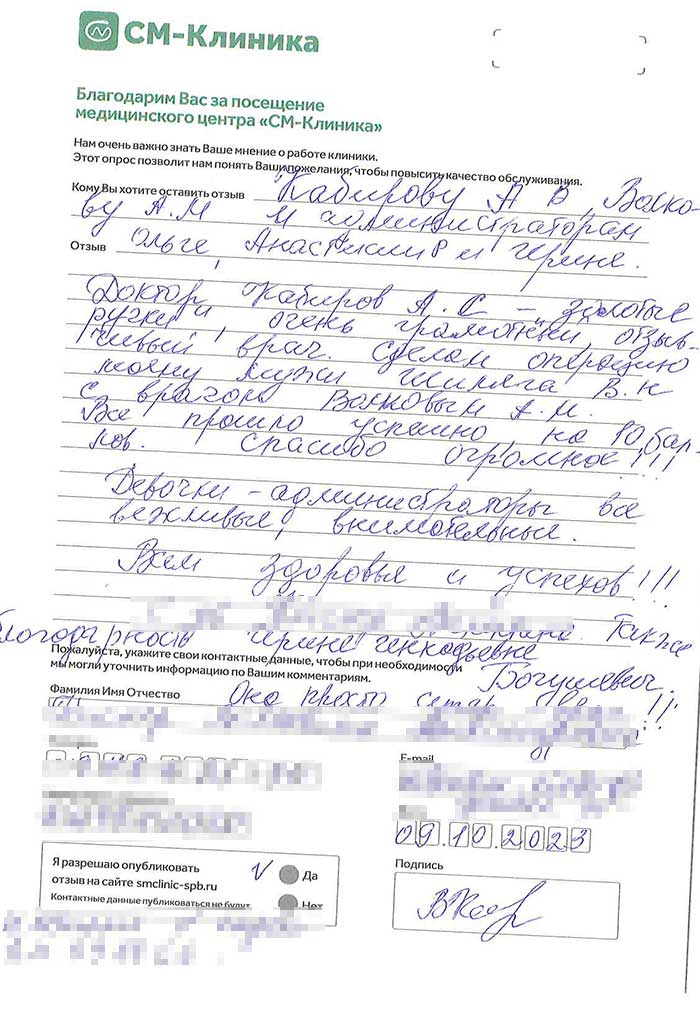 СМ-Клиника
Благодарим Вас за посещение
медицинского центра «СМ-Клиника»
Нам очень важно знать Ваше мнение о работе клиники.
Этот опрос позволит нам понять Ваши пожелания, чтобы повысить качество обслуживания.
Кому Вы хотите оставить отзыв Кабирову А В, Волко-
ву А.М и администраторам
Отзыв Ольге, Анастасии и Ирине.
Доктор Кабиров А. С - "золотые
ручки", очень грамотный, отзыв-
чивый врач. Сделал операцию
моему мужу Шиляга В. Н
с врагом Волковым А.М.
Все прошло успешно, на 10 бал-
лов. Спасибо огромное!!!
Девочки - администраторы все
вежливые, внимательные.
Всем здоровья и успехов!!!
Также
благодарность Ирине Генадьевне
Пожалуйста, укажите свои контактные данные, чтобы при необходимости
мы могли уточнить информацию по Вашим комментариям.
Богушевич.
Фамилия Имя Отчество Она просто !!
E-mail
09.10.2023
Я разрешаю опубликовать
отзыв на сайте smclinic-spb.ru
V Да
Контактные данные публиковаться не будут.
Нет
Подпись